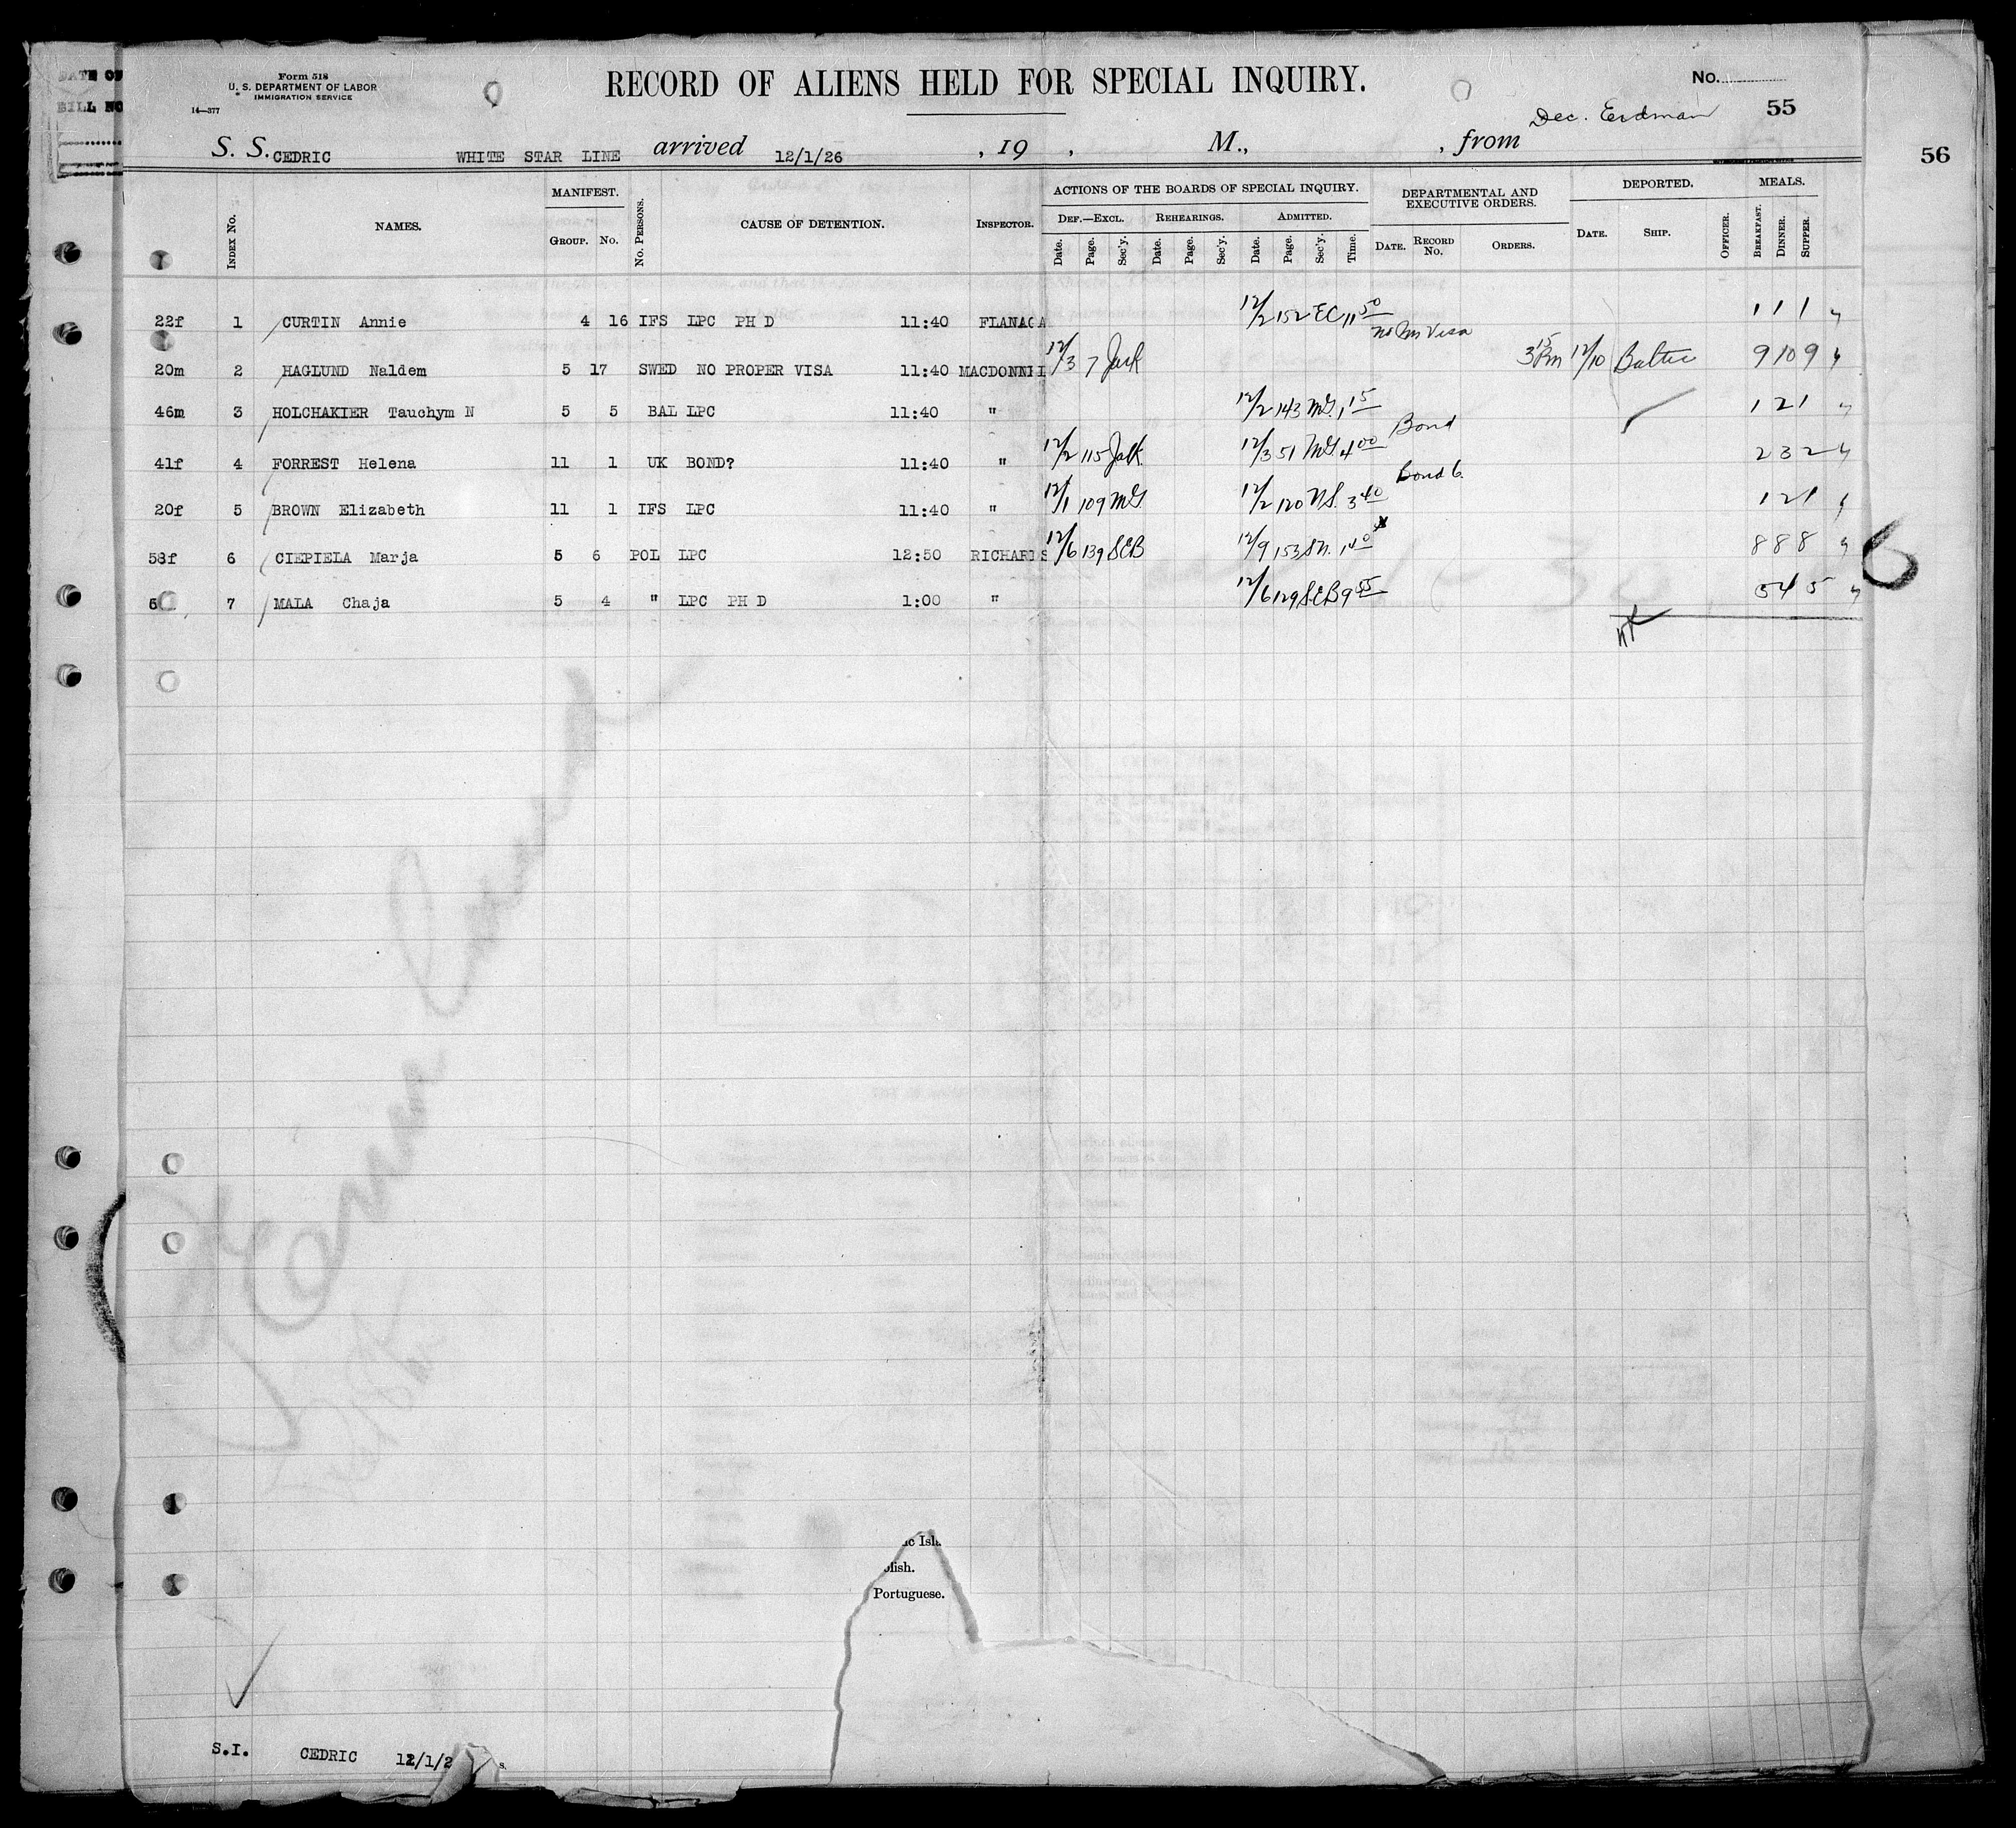 DATE OF
BILL NO
Form 518
U. S. DEPARTMENT OF LABOR
IMMIGRATION SERVICE
14—377
RECORD OF ALIENS HELD FOR SPECIAL INQUIRY.
No.
Dec. Erdman 55
56
S. S. CEDRIC WHITE STAR LINE arrived 12/1/26 , 19 , M., , from
Index No. NAMES. MANIFEST. Group. No. No. Persons. CAUSE OF DETENTION. Inspector. ACTIONS OF THE BOARDS OF SPECIAL INQUIRY. DEPARTMENTAL AND EXECUTIVE ORDERS. DEPORTED. MEALS.
Def.—Excl. Rehearings. Admitted.
Date. Page. Sec'y. Date. Page. Sec'y. Date. Page. Sec'y. Time. Date. Record No. Orders. Date. Ship. Officer. Breakfast. Dinner. Supper.
22f 1 CURTIN Annie 4 16 IFS LPC PH D 11:40 FLANAGA 12/2 152 EC 11 50 1 1 1
20m 2 HAGLUND Naldem 5 17 SWED NO PROPER VISA 11:40 MACDONNEL 12/3 7 Jack no Im Visa 3 15 Pm 12/10 Baltic 9 10 9
46m 3 HOLCHAKIER Tauchym N 5 5 BAL LPC 11:40 " 12/2 143 MG 1 15 1 2 1
41f 4 FORREST Helena 11 1 UK BOND? 11:40 " 12/2 115 Jack 12/3 51 MG 4 00 Bond 2 3 2
20f 5 BROWN Elizabeth 11 1 IFS LPC 11:40 " 12/1 109 MG 12/2 120 N.S. 3 40 Bond 6. 1 2 1
58f 6 CIEPIELA Marja 5 6 POL LPC 12:50 RICHARDS 12/6 139 SEB 12/9 153 SN. 1 40 8 8 8
7 MALA Chaja 5 4 " LPC PH D 1:00 " 12/6 129 SEB 9 55 5 4 5
6
Portuguese.
S.I. CEDRIC 12/1/2